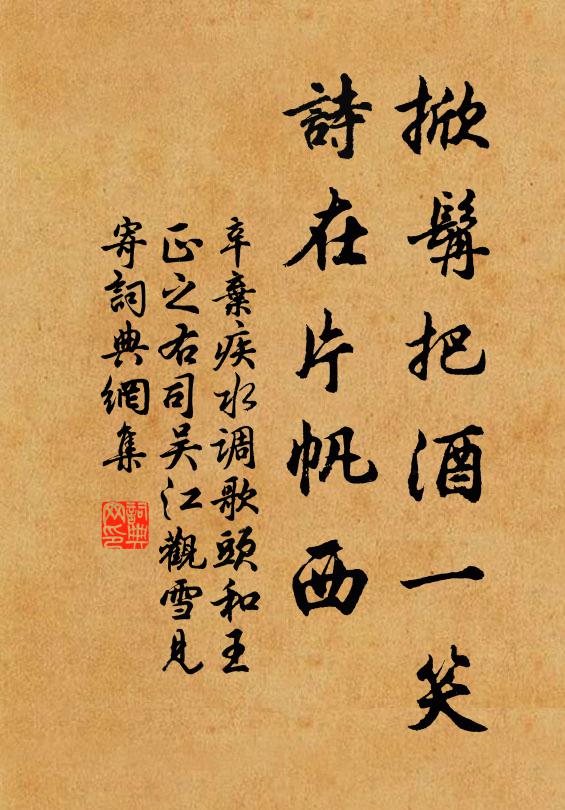 掀髯把酒一笑
詩在片帆西
辛棄疾水调歌頭和王
正之右司吴江觀雪見
寄詞典網集
詞典
网印